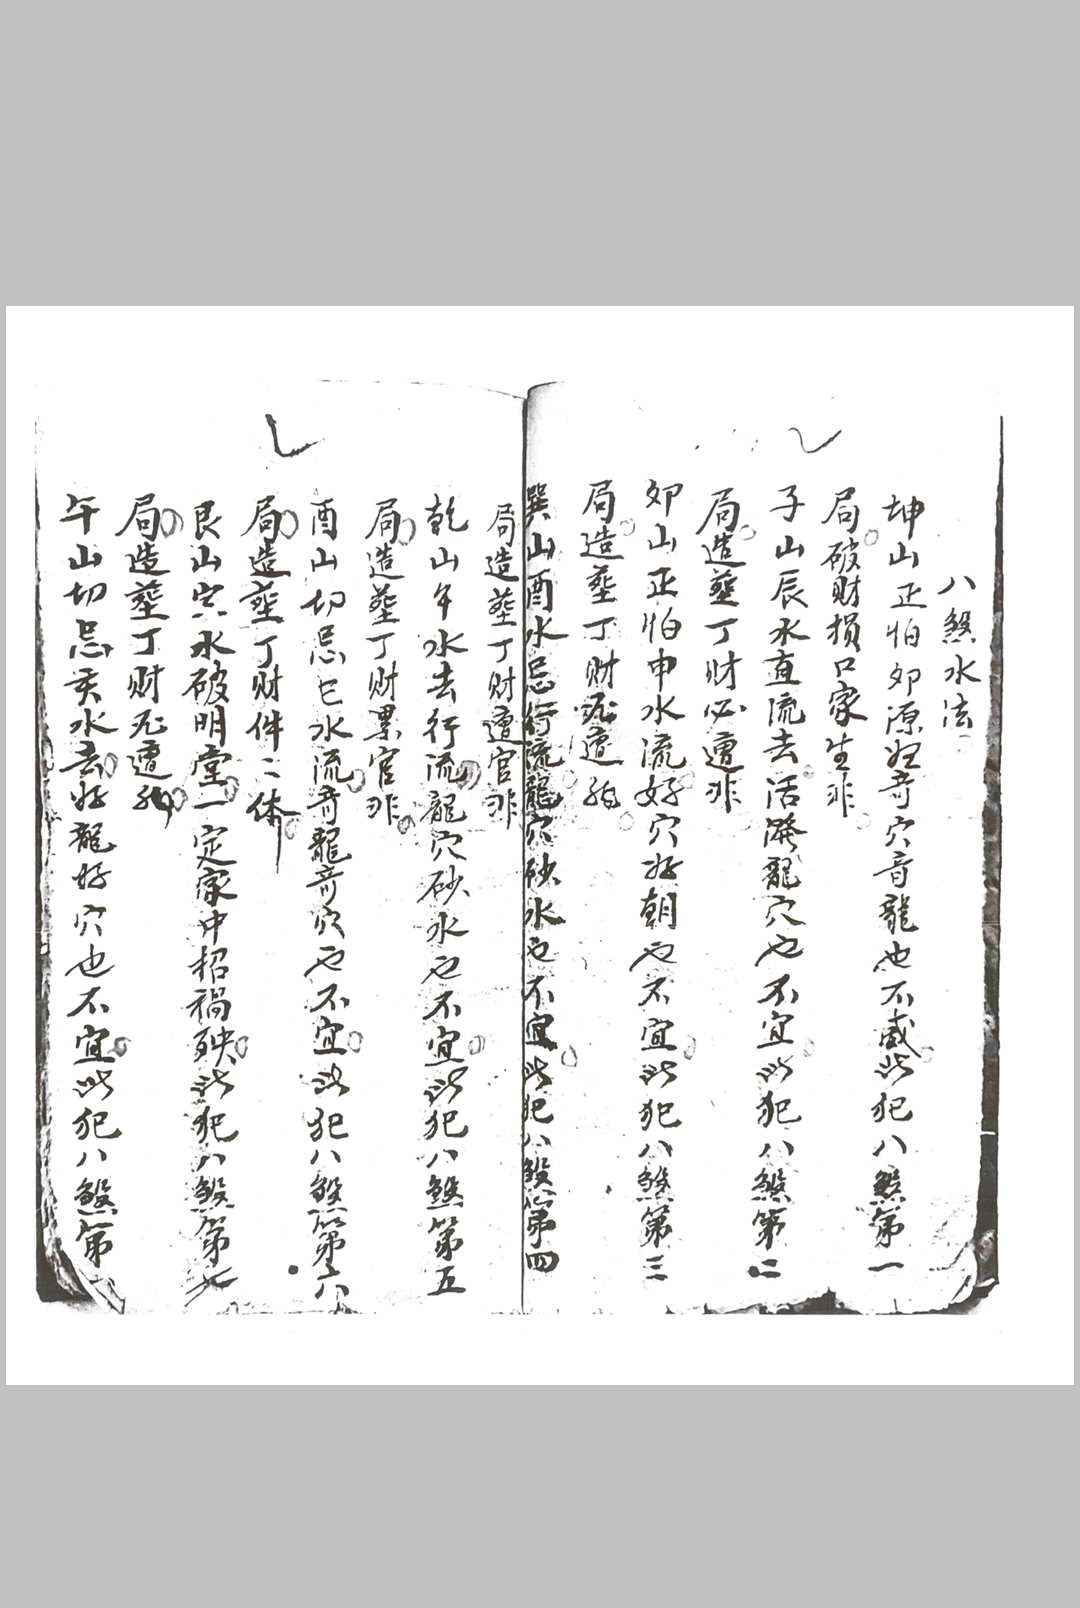 八煞水法
坤山正怕卯源狂奇穴奇龍也不成此犯八煞第一
局破财損口家生非
子山辰水直流去活隆龍穴也不宜此犯八煞第二
局造塟丁财必遭非
卯山正怕申水流好穴好朝也不宜此犯八煞第三
局造塟丁财尅遭殃
巽山酉水忌行流龍穴砂水也不宜此犯八煞第四
局造塟丁财遭官非
乾山午水去行流龍穴砂水也不宜此犯八煞第五
局造塟丁财累官非
酉山切忌巳水流奇龍奇穴也不宜此犯八煞第六
局造塟丁财件二休
艮山寅水破明堂一定家中招禍殃此犯八煞第七
局造塟丁财尅遭殃
午山切忌亥水去好龍好穴也不宜此犯八煞第